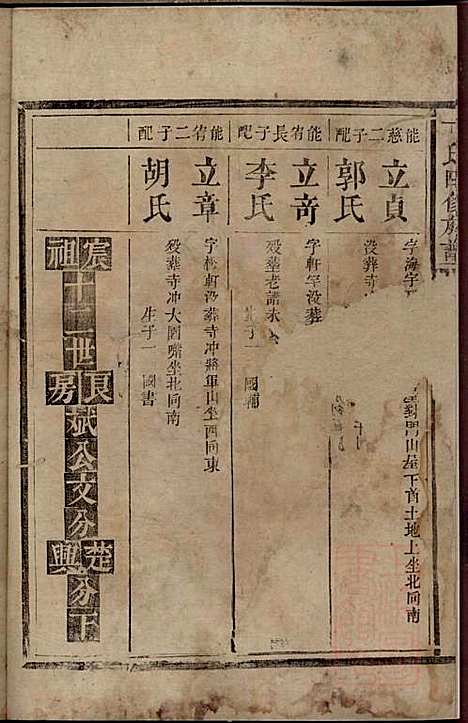 氏四修族譜
能慈二子 配
立貞 字海宇
郭氏 沒葬寺
對門山屋下首土地上坐北向南
能省長子 配
立奇 字軒宇沒葬
李氏 歿葬老譜未
生子一 國輔
能省二子 配
立章 字 軒沒葬寺冲將軍山坐西向東
胡氏 歿葬寺冲大園嘴坐北向南
生子一 國書
宸祖十二世良房斌公文分楚興分下